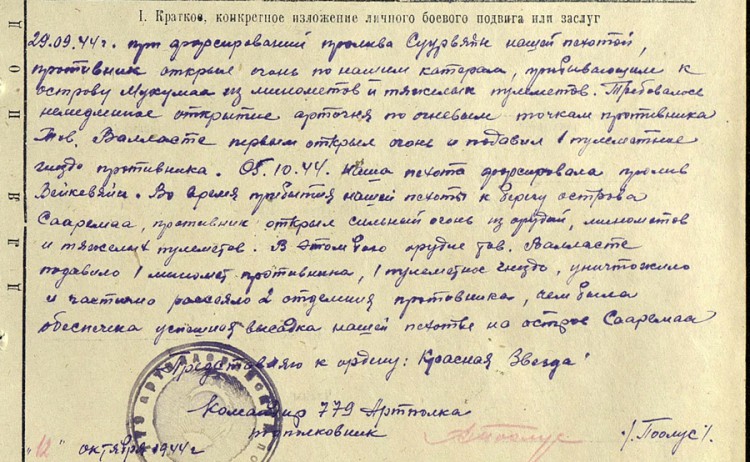 I. Краткое, конкретное изложение личного боевого подвига или заслуг
29.09.44г. при форсировании пролива Суурвяйн нашей пехотой,
противник открыл огонь по нашим катерам, прибывающим к
острову Мухумаа из минометов и тяжелых пулеметов. Требовалось
немедленное открытие артогня по огневым точкам противника
Тов. Валласте первым открыл огонь и подавил 1 пулеметное
гнездо противника. 05.10.44. наша пехота форсировала пролив
Вейкевяйн. Во время прибытия нашей пехоты к берегу острова
Сааремаа, противник открыл сильный огонь из орудий, минометов
и тяжелых пулеметов. В этом бою орудие тов. Валласте
подавило 1 миномет противника, 1 пулеметное гнездо, уничтожило
и частично рассеяло 2 отделения противника, чем была
обеспечена успешная высадка нашей пехоты на остров Сааремаа
Представляю к ордену: "Красная Звезда"
Командир 779 Артполка
подполковник /Поолус/.
"12" октября 1944г
ДЛЯ ПОД